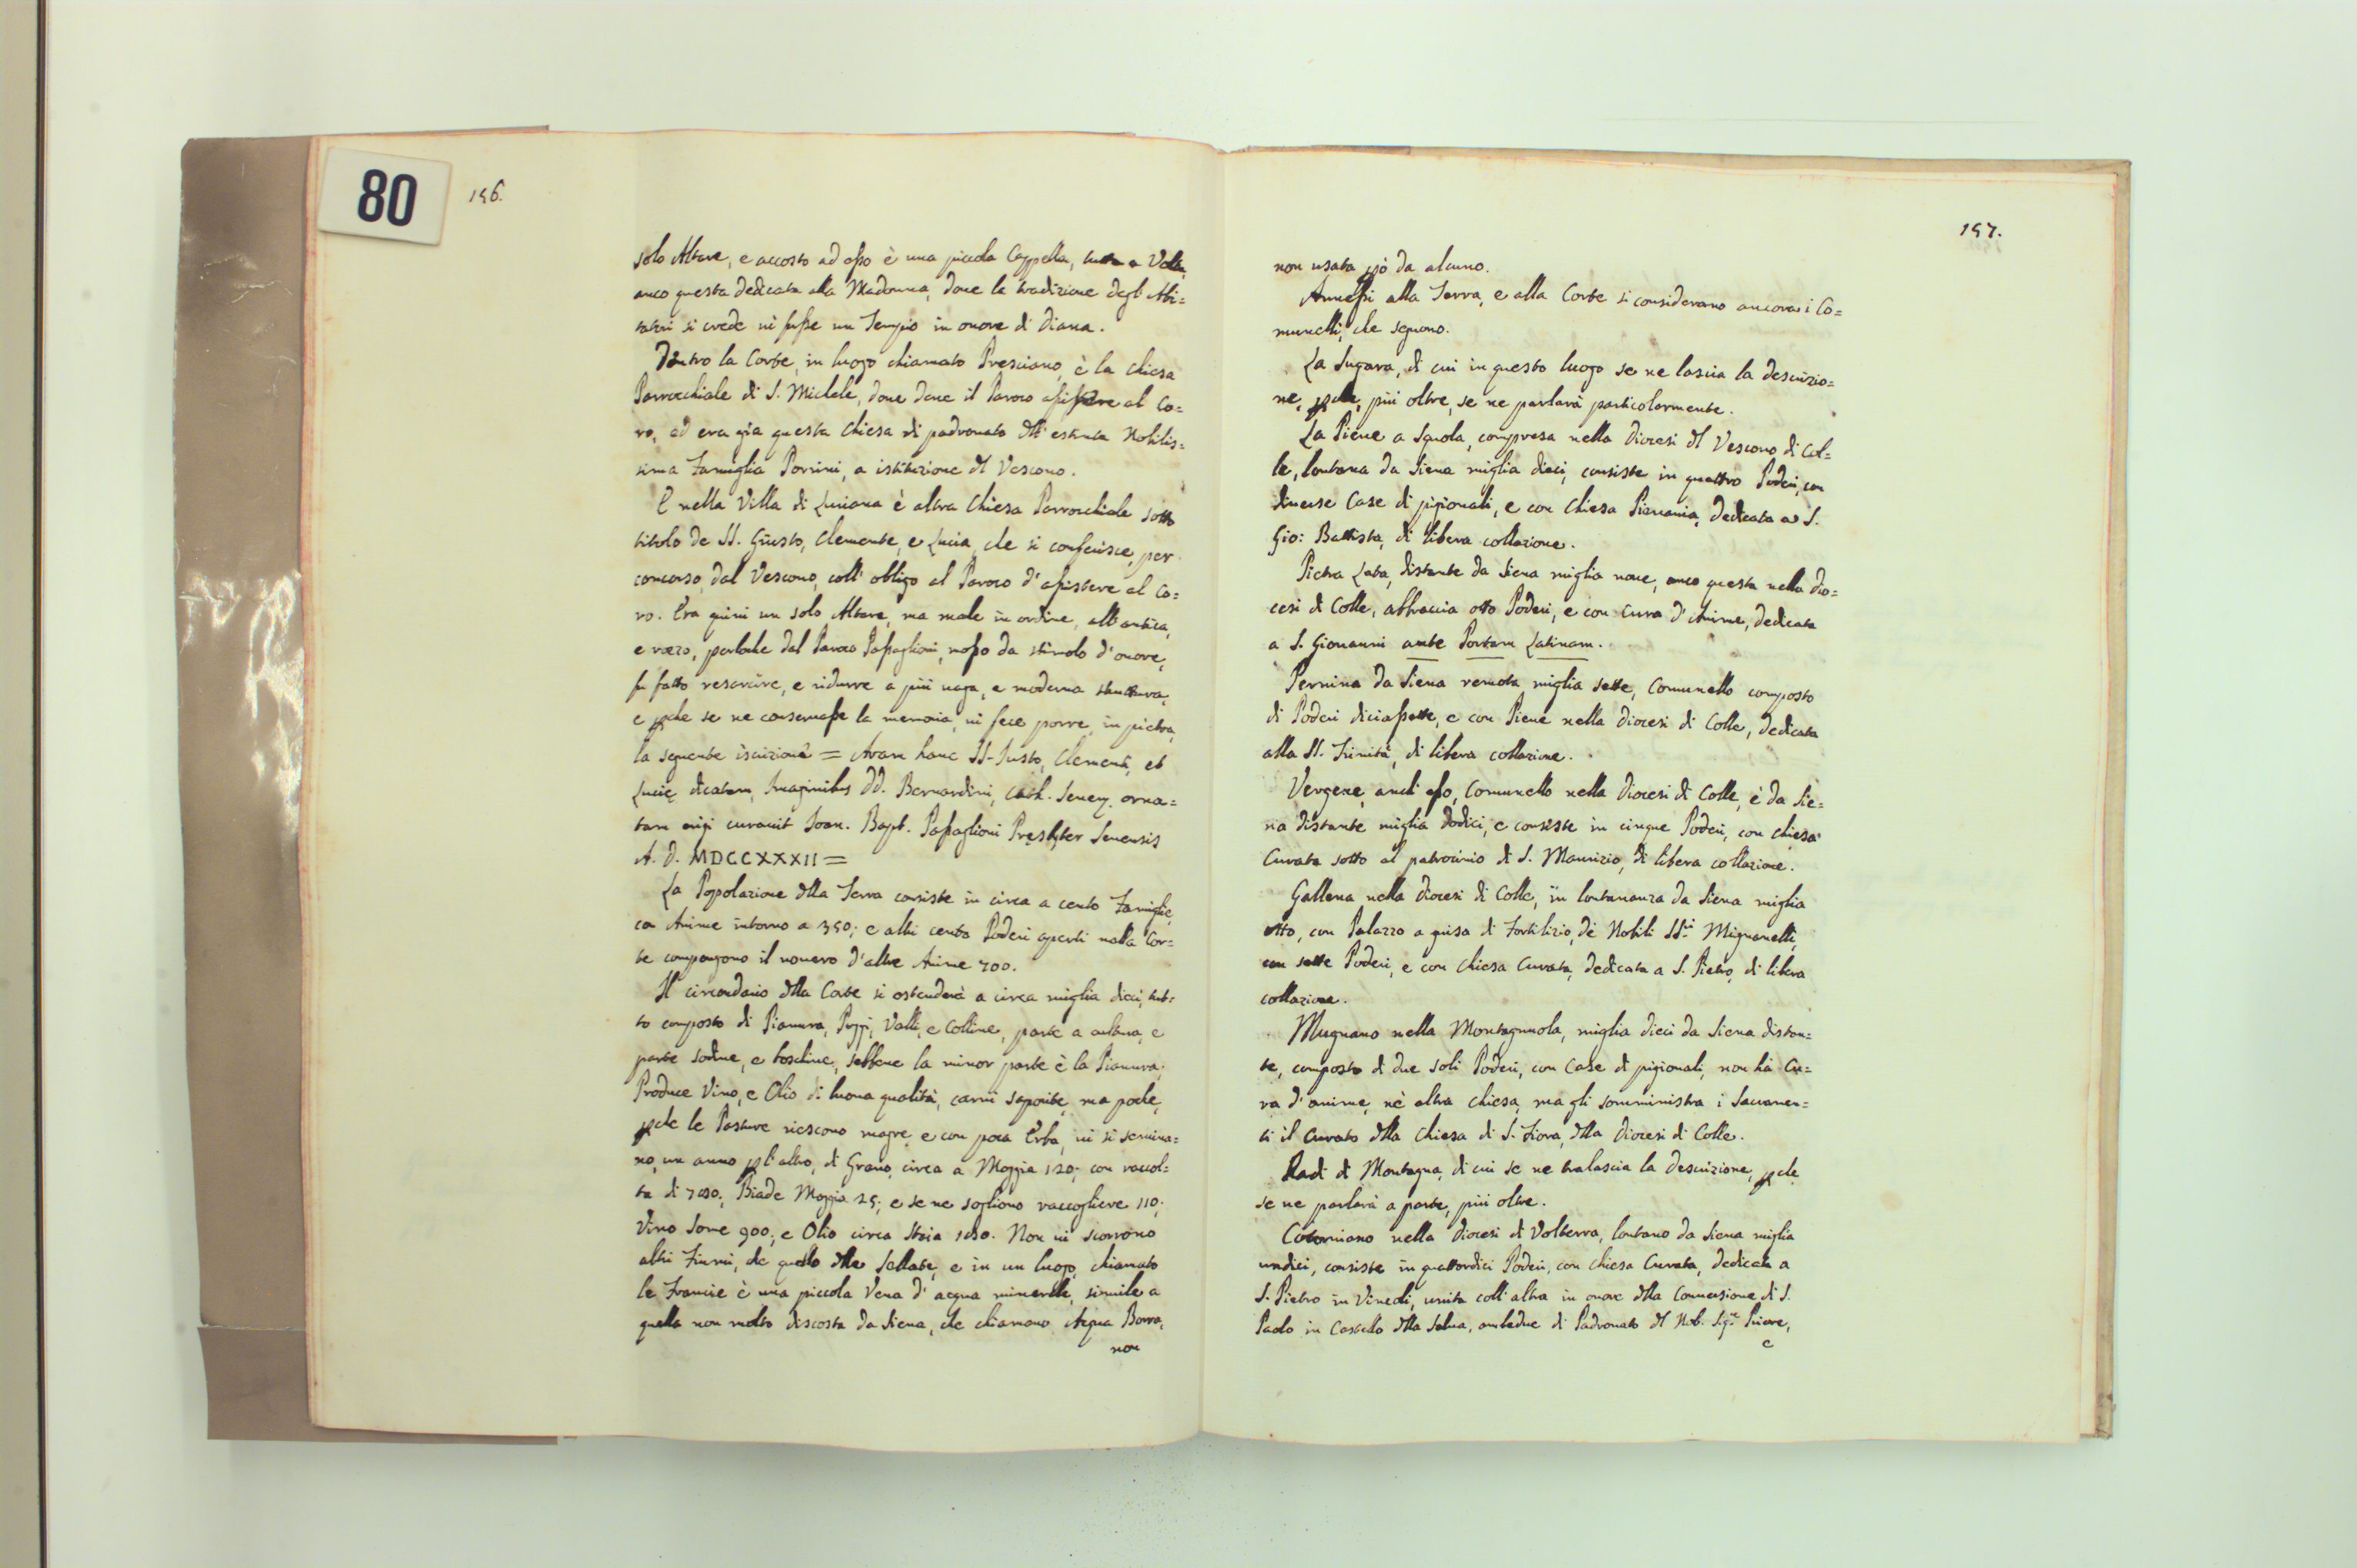 80
156.
solo Altare, e accosto ad esso è una piccola Cappella, tutta a Volta,
anco questa dedicata alla Madonna, dove la tradizione degl'Abi=
tatori si crede vi fusse un Tempio in onore di Diana.
Dentro la Corte, in luogo chiamato Presciano, è la Chiesa
Parrocchiale di S. Michele, dove deve il Paroco assistere al Co=
ro, ed era gia questa Chiesa di padronato dll'estinta Nobilis=
sima Famiglia Porrini, a istituzione dl Vescovo.
E nella Villa di Luriana è altra Chiesa Parrochiale sotto
titolo de SS. Giusto, Clemente, e Lucia, che si conferisce, per
concorso, dal Vescovo, coll'obligo al Paroco d'assistere al Co=
ro. Era quivi un solo Altare, ma male in ordine, all'antica,
e rozzo, perloche dal Paroco Passaglioni, mosso da stimolo d'onore,
fu fatto resarcire, e ridurre a più vaga, e moderna struttura,
e pche se ne conservasse la memoria, vi fece porre, in pietra,
la seguente iscrizione = Aram hanc SS. Justo, Clementi, et
Lucię dicatam, Imaginibus DD. Bernardini, Cath. Senen. orna=
tam erigi curavit Joan. Bapt. Passaglioni Presbyter Senensis
A. D. MDCCXXXII =
La Popolazione dlla Terra consiste in circa a cento Famiglie,
con Anime intorno a 350; e altri cento Poderi aperti nella Cor=
te compongono il novero d'altre Anime 700.
Il circondario dlla Corte si ostenderà a circa miglia dieci, tut=
to composto di Pianura, Poggi, Valli, e Colline, parte a cultura, e
parte sodive, e boschive, sebbene la minor parte è la Pianura;
Produce Vino, e Olio di buona qualità, carni saporite, ma poche,
pche le Pasture riescono magre, e con poca Erba, vi si semina=
no, un anno pl'altro, di Grano, circa a Moggia 120; con raccol=
ta di 700; Biade Moggia 25; e se ne sogliono raccogliere 110;
Vino Some 900; e Olio circa Staia 1000. Non vi scorrono
altri Fiumi, che quello dlle Sellate, e in un luogo, chiamato
le Francie è una piccola Vena d'acqua minerale, simile a
quella non molto discosta da Siena, che chiamano Acqua Borra,
non
157.
non usata pò da alcuno.
Annessi alla Terra, e alla Corte si considerano ancora i Co=
munelli, che seguono.
La Suvara, di cui in questo luogo se ne lascia la descrizio=
ne, pche, più oltre, se ne parlarà particolarmente.
La Pieve a Scuola, compresa nella Diocesi dl Vescovo di Col=
le, lontana da Siena miglia dieci, consiste in quattro Poderi, con
diverse Case di pigionali, e con Chiesa Pievania, dedicata a S.
Gio: Battista, di libera collazione.
Pietra Lata, distante da Siena miglia nove, anco questa nella Dio=
cesi di Colle, abbraccia otto Poderi, e con Cura d'Anime, dedicata
a S. Giovanni ante Portam Latinam.
Pernina da Siena remota miglia sette, Comunello composto
di Poderi diciassette, e con Pieve nella Diocesi di Colle, dedicata
alla SS. Trinità, di libera collazione.
Vergene, anch'esso, Comunello nella Diocesi di Colle, è da Sie=
na distante miglia dodici, e consiste in cinque Poderi, con Chiesa
Curata sotto al patrocinio di S. Maurizio, di libera collazione.
Gallena nella Diocesi di Colle, in lontananza da Siena miglia
otto, con Palazzo a guisa di Fortilizio, de Nobili SSri Mignanelli,
con sette Poderi, e con Chiesa Curata, dedicata a S. Pietro, di libera
collazione.
Mugnano nella Montagnuola, miglia dieci da Siena distan=
te, composto di due soli Poderi, con Case di pigionali, non hà Cu=
ra d'anime, nè altra Chiesa, ma gli somministra i Sacramen=
ti il Curato dlla Chiesa di S. Fiora, dlla Diocesi di Colle.
Radi di Montagna, di cui se ne tralascia la descrizione, pche
se ne parlarà a parte, più oltre.
Cotorniano nella Diocesi di Volterra, lontano da Siena miglia
undici, consiste in quattordici Poderi, con Chiesa Curata, dedicata a
S. Pietro in Vincoli, unita coll'altra in onore dlla Conversione di S.
Paolo in Castello dlla Selva, ambedue di Padronato dl Nob. Sigre Priore,
e